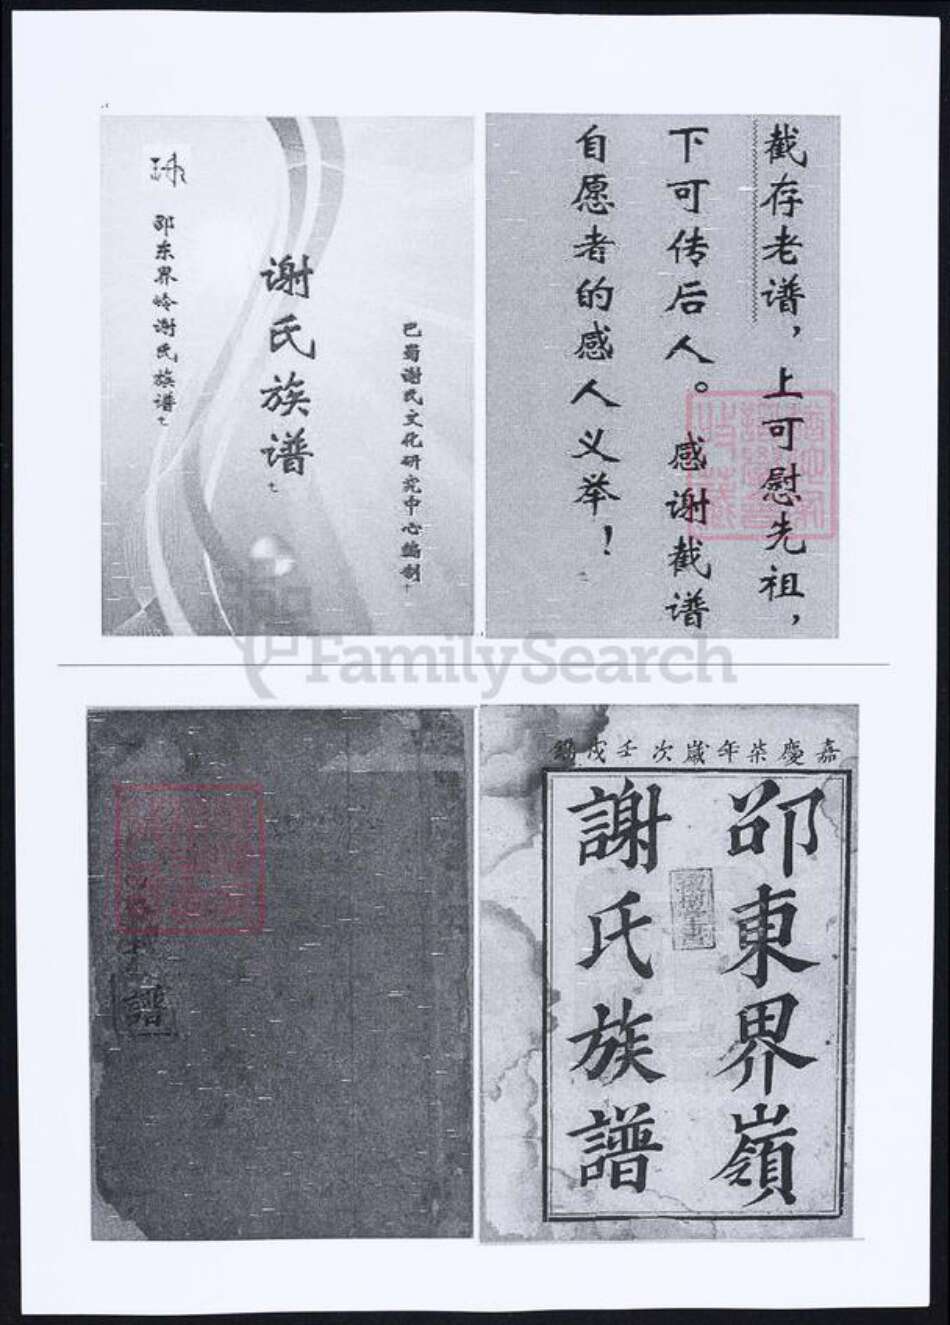 邵东界岭谢氏族谱
谢氏族谱
巴蜀谢氏文化研究中心编制
截存老谱，上可慰先祖，
下可传后人。感谢截谱
自愿者的感人义举！
FamilySearch
譜
嘉慶柒年歲次壬戌鐫
邵東界嶺
謝氏族譜